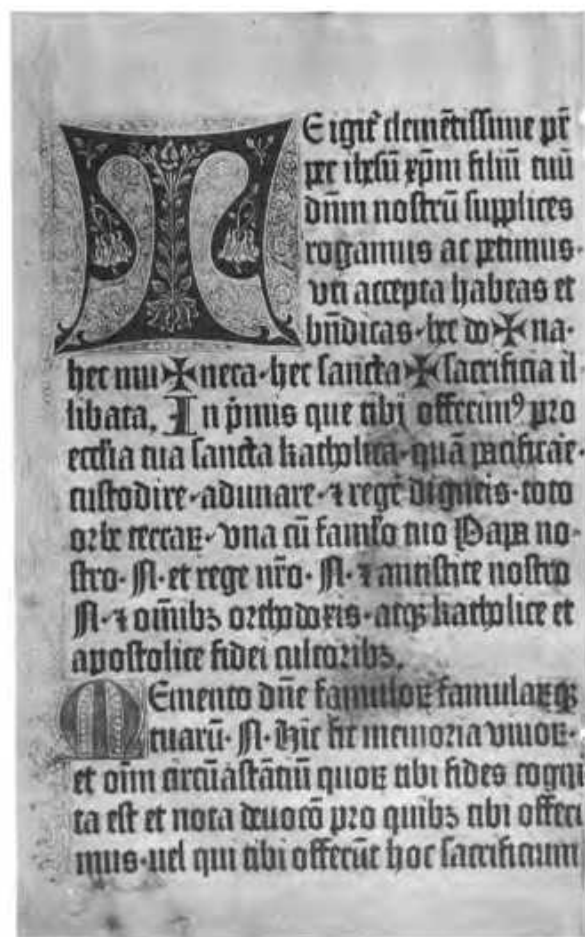 TE igit᷑ clemētissime pr̄
per ih̄esū xp̄m filiū tuū
dn̄m nostrū supplices
rogamus ac petimus·
vti accepta habeas et
bn̄dicas·hec do✠na·
hec mu✠nera·hec sancta✠sacrificia il
libata, In p̄mis que tibi offerimꝰ pro
eccl̄ia tua sancta katholica·quā pacificar̄e
custodire·adunare·⁊ reger̄e digneris·toto
orbe terraꝝ·vna cū famlo tuo Papa no-
stro·N·et rege nr̄o·N·⁊ antistite nostro
N·⁊ om̄ibꝫ orthodoxis·atqꝫ katholice et
apostolice fidei cultoribꝫ.
Memento dn̄e famuloꝝ famulaꝝqꝫ
tuarū·N·Hic fit memoria viuoꝝ·
et oīm circūastātiū quoꝝ tibi fides cogni
ta est et nota deuocō pro quibꝫ tibi offeri
mus·uel qui tibi offerūt hoc sacrificium